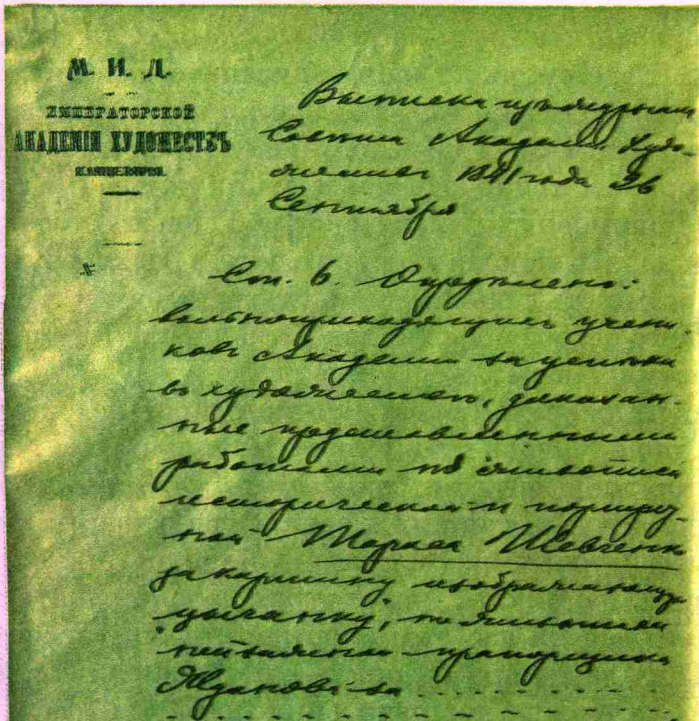 М. И. Д.
ИМПЕРАТОРСКОЙ
АКАДЕМІИ ХУДОЖЕСТВЪ
КАНЦЕЛЯРІЯ.
№
Выписка изъ журнала
Совѣта Академіи Худо-
жествъ 1841 года 26
Сентября
Ст. 6. Опредѣлено:
вольноприходящихъ учени-
ковъ Академіи за успѣхи
въ художествѣ, доказан-
ные представленными
работами по живописи
исторической и портрет-
ной Тараса Шевченко
за картину изображающую
"цыганку", по живописи
пейзажной прапорщика
Жданова за